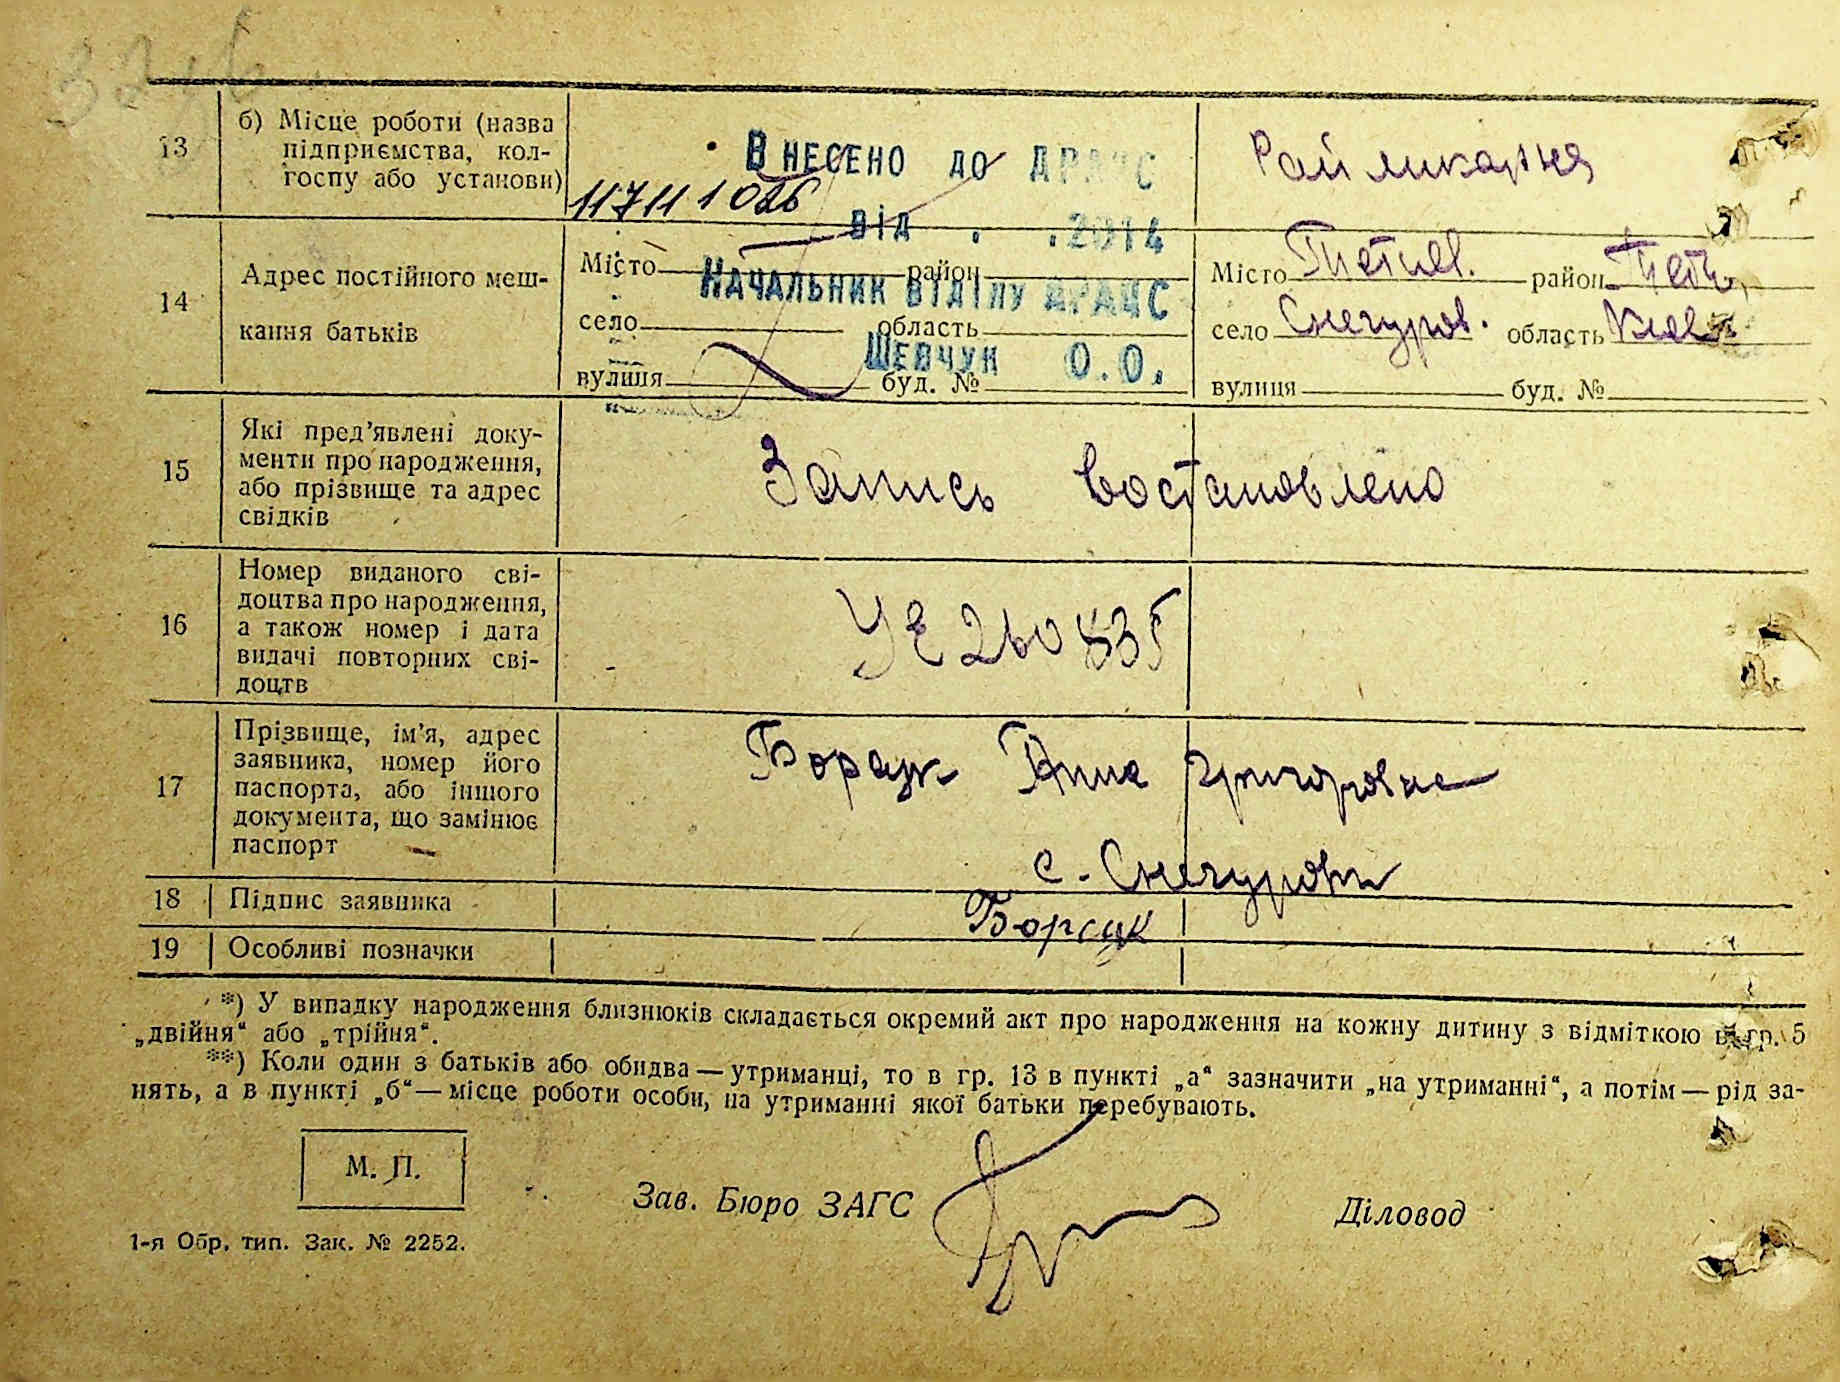 13
б) Місце роботи (назва
підприємства, кол-
госпу або установи)
Внесено до ДРАЦС
117111026
від . .2014
Начальник відділу ДРАЦС
Шевчук О.О.
Райликарня
14
Адрес постійного меш-
кання батьків
Місто район
село область
вулиця буд. №
Місто Тетиев. район Теті
село Снегуров. область Киев
вулиця буд. №
15
Які пред’явлені доку-
менти про народження,
або прізвище та адрес
свідків
Запись востановлено
16
Номер виданого сві-
доцтва про народження,
а також номер і дата
видачі повторних сві-
доцтв
УЕ 260835
17
Прізвище, ім’я, адрес
заявника, номер його
паспорта, або іншого
документа, що замінює
паспорт
Борсук Анна Григоровна
с. Снегуровка
18 Підпис заявника
Борсук
19 Особливі позначки
*) У випадку народження близнюків складається окремий акт про народження на кожну дитину з відміткою в гр. 5
„двійня“ або „трійня“.
**) Коли один з батьків або обидва — утриманці, то в гр. 13 в пункті „а“ зазначити „на утриманні“, а потім — рід за-
нять, а в пункті „б“ — місце роботи особи, на утриманні якої батьки перебувають.
М. П.
Зав. Бюро ЗАГС
Діловод
1-я Обр. тип. Зак. № 2252.